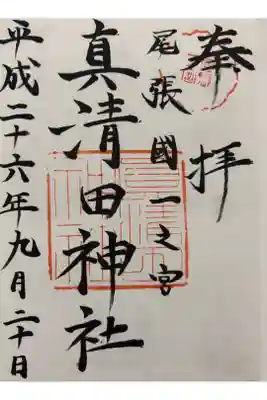 奉拝
尾張國一之宮
真清田神社
平成二十六年九月二十日